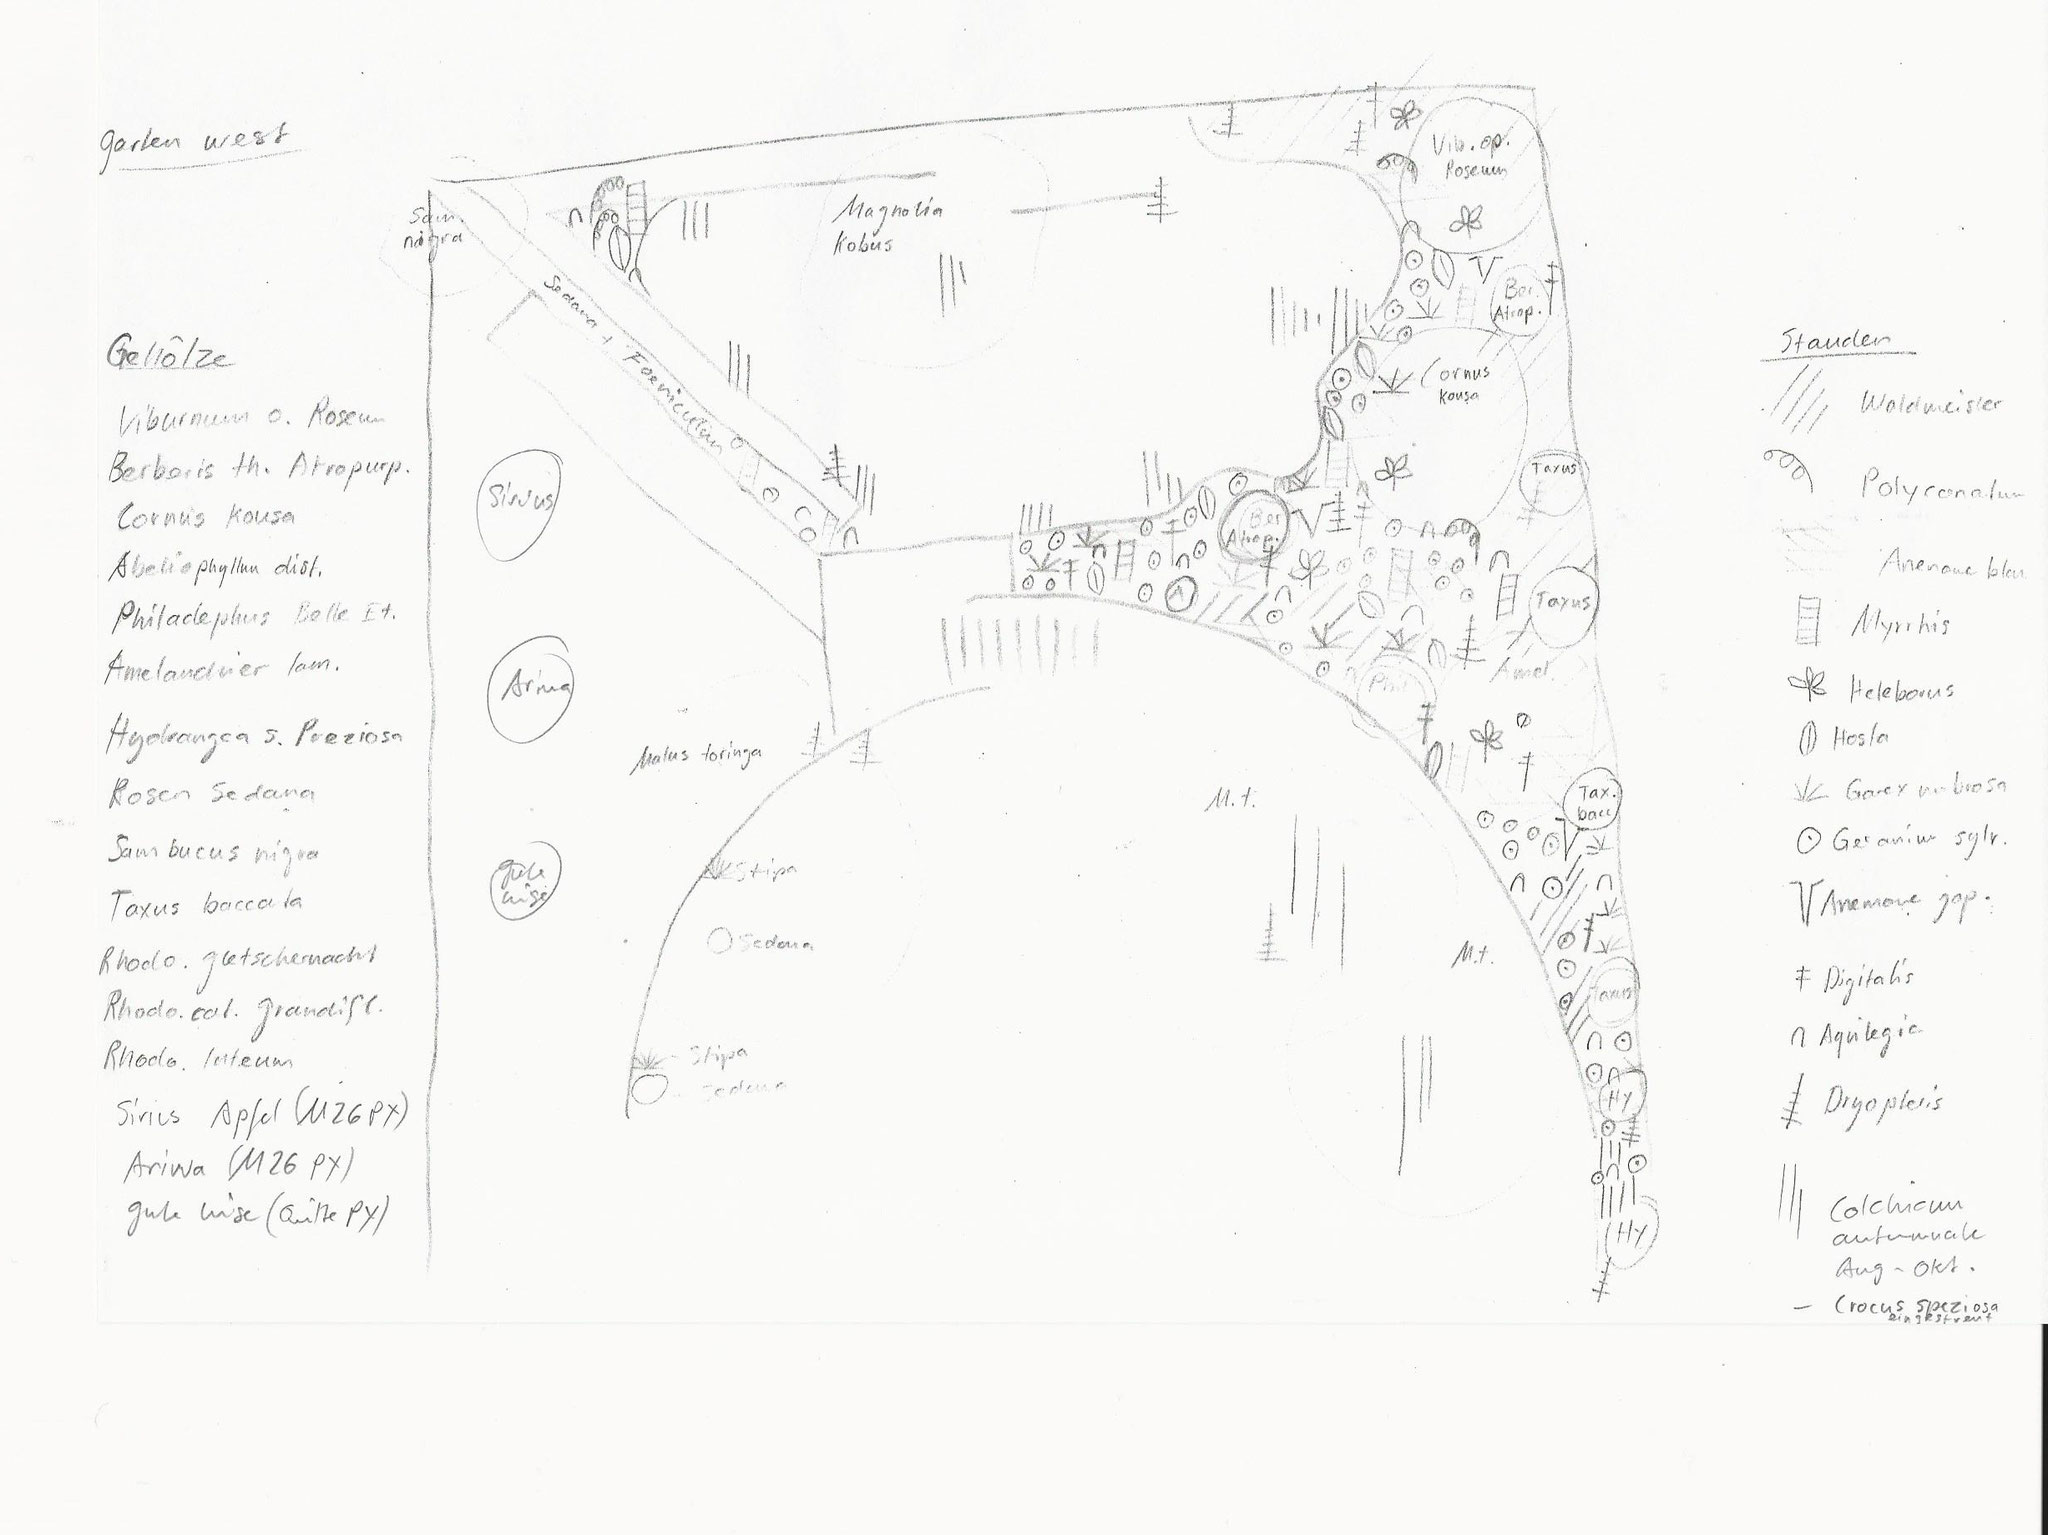 Garten west
Gehölze
Viburnum o. Roseum
Berberis th. Atropurp.
Cornus kousa
Abeliophyllum dist.
Philadephus Belle Et.
Amelanchier lam.
Hydrangea s. Preziosa
Rosen Sedana
Sambucus nigra
Taxus baccata
Rhodo. gletschernacht
Rhodo. cat. grandifl.
Rhodo. luteum
Sirius Apfel (M26 PX)
Ariwa (M26 PX)
gute luise (Quitte PX)
Sam.
nigra
Sedana + Foeniculum
Magnolia
kobus
Vib. op.
Roseum
Ber.
Atrop.
Cornus
kousa
Taxus
Ber
Atrop.
A
Taxus
Amel.
Phil
Tax.
bacc
Taxus
Hy
Hy
Sirius
Ariwa
gute
luise
Malus toringa
M.t.
M.t.
Stipa
Sedana
Stipa
Sedana
Stauden
Waldmeister
Polygonatum
Anemone blan
Myrrhis
Heleborus
Hosta
Carex umbrosa
Geranium sylv.
Anemone jap.
Digitalis
Aquilegia
Dryopteris
Colchicum
autumnale
Aug - Okt.
- Crocus speziosa
eingestreut